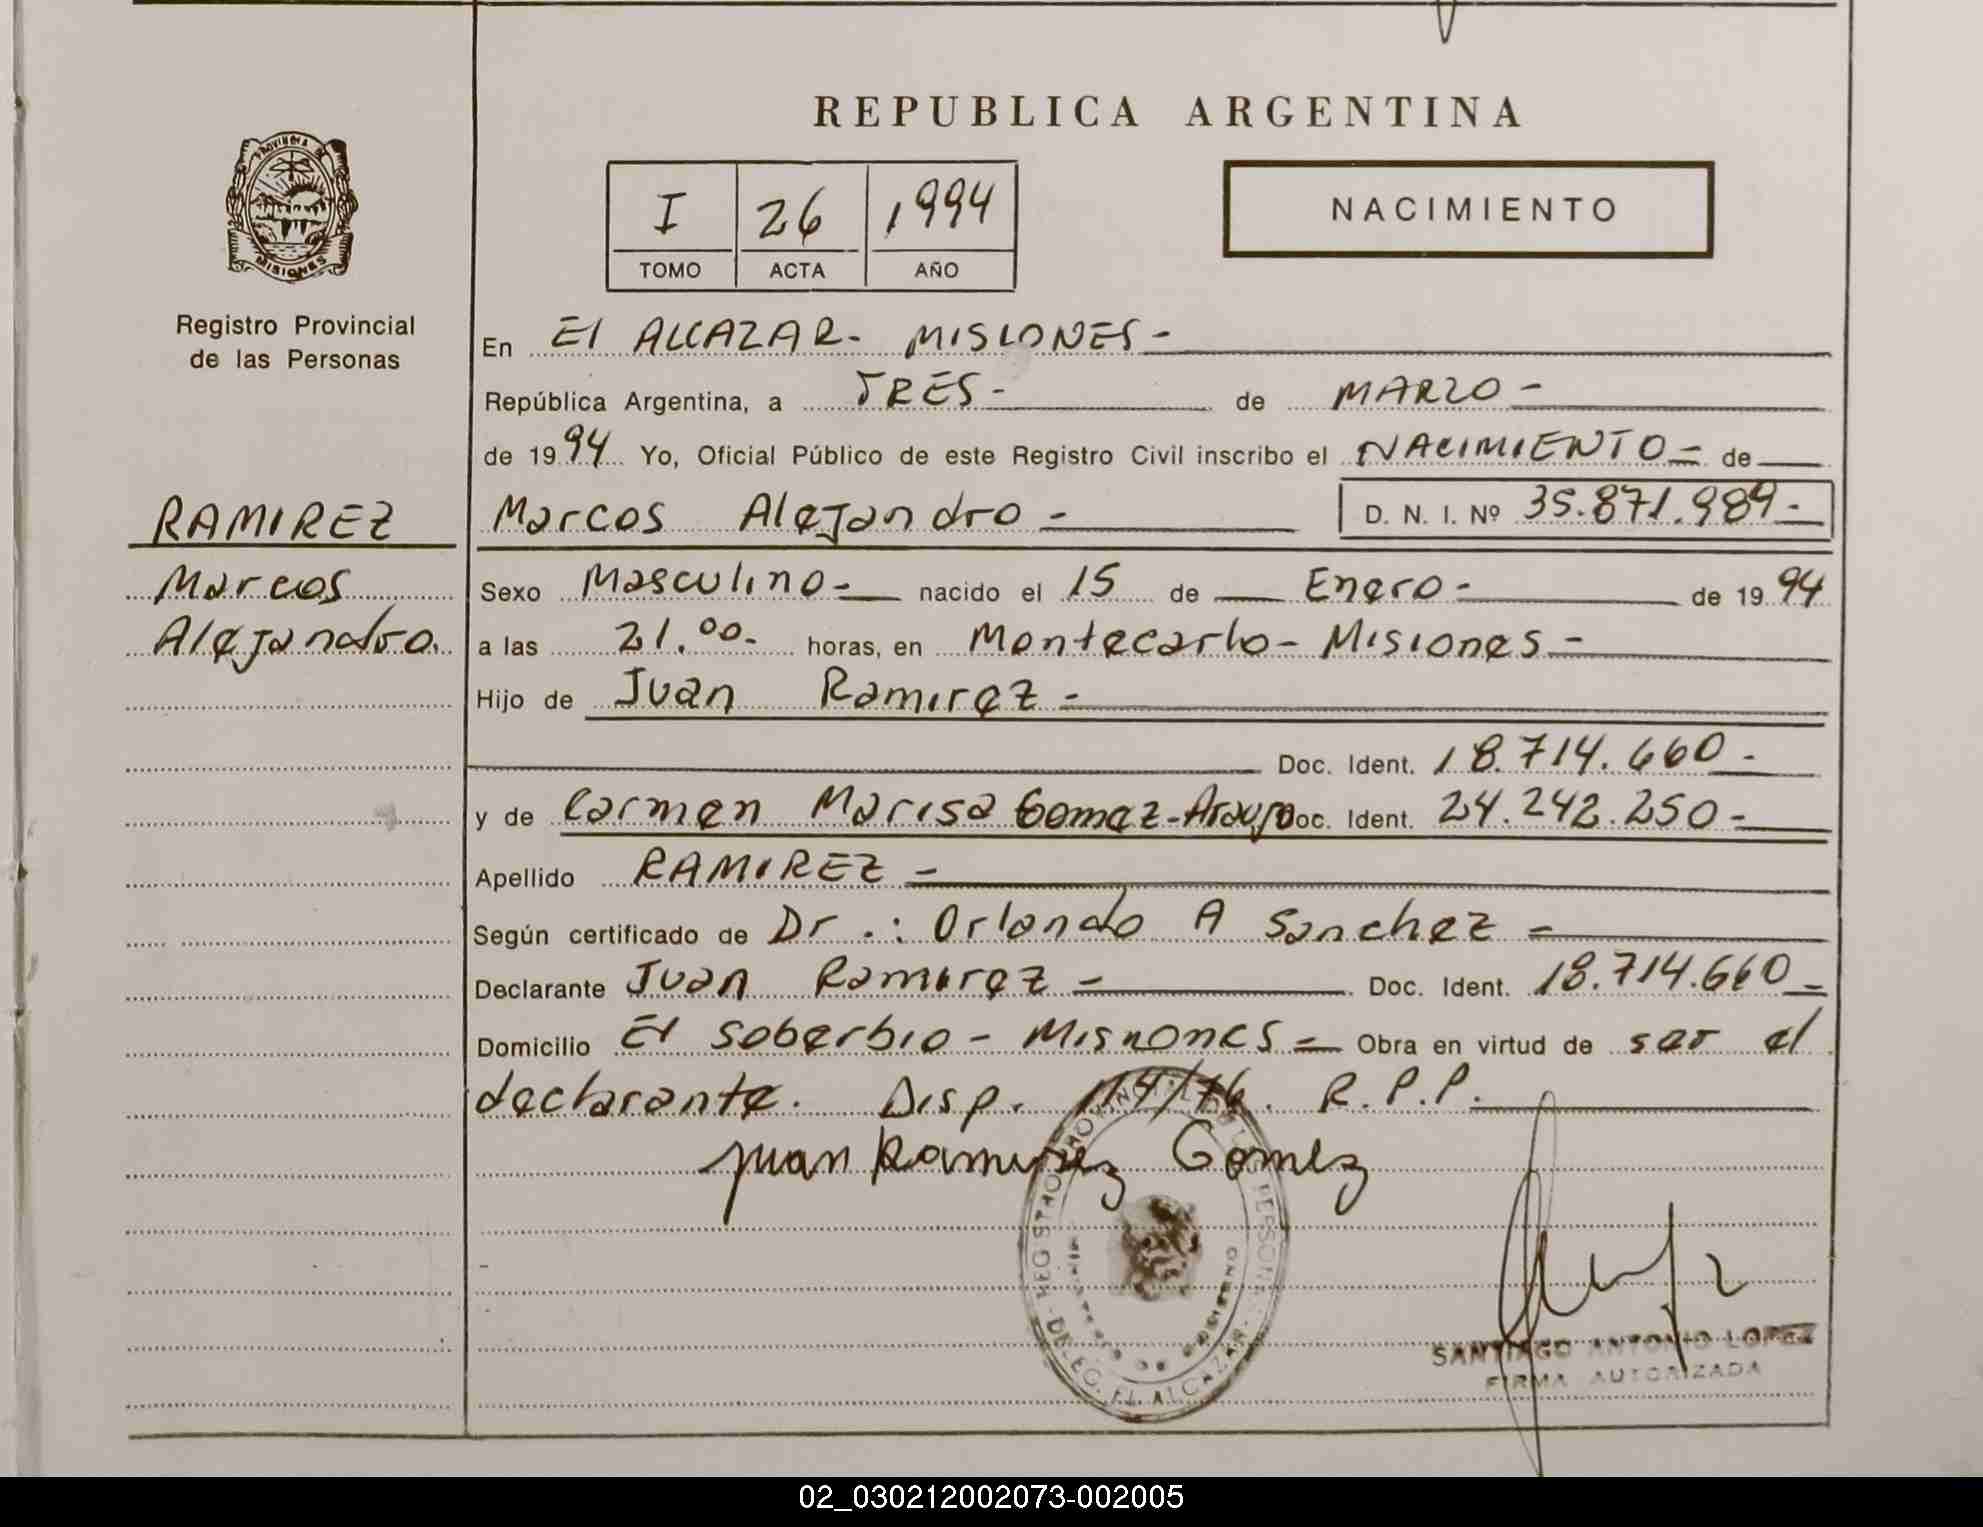 REPUBLICA ARGENTINA
PROVINCIA DE MISIONES
I 26 1994
TOMO ACTA AÑO
NACIMIENTO
Registro Provincial
de las Personas
RAMIREZ
Marcos
Alejandro.
En El ALCAZAR- MISIONES-
República Argentina, a TRES- de MARZO-
de 1994 Yo, Oficial Público de este Registro Civil inscribo el NACIMIENTO- de
Marcos Alejandro- D. N. I. Nº 35.871.989-
Sexo Masculino- nacido el 15 de Enero- de 1994
a las 21.00- horas, en Montecarlo- Misiones-
Hijo de Juan Ramirez-
Doc. Ident. 18.714.660-
y de Carmen Marisa Gomez-Araujo Doc. Ident. 24.242.250-
Apellido RAMIREZ-
Según certificado de Dr.: Orlando A Sanchez-
Declarante Juan Ramirez- Doc. Ident. 18.714.660-
Domicilio El Soberbio- Misiones- Obra en virtud de ser el
declarante. Disp. 114/76. R.P.P.
juan Ramirez Gomez
REGISTRO PROVINCIAL DE LAS PERSONAS
MINISTERIO DE GOBIERNO
DELEG. EL ALCAZAR
SANTIAGO ANTONIO LOPEZ
FIRMA AUTORIZADA
02_030212002073-002005